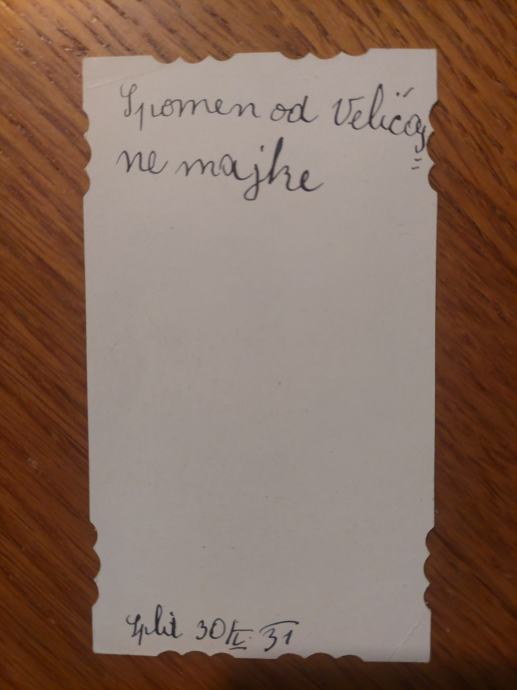 Spomen od Veličas
ne majke
Split 30/II. 31